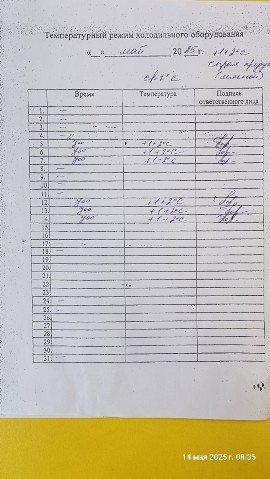 Температурный режим холодильного оборудования
« » май 2025 г. +1+2°C
Время Температура Подпись ответственного лица
1. —
2. —
3. —
4. —
5. 700 +1+2°C
6. 700 +1+2°C
7. 700 +1+2°C
8. —
9. —
10. —
11. —
12. 700 +1+2°C
13. 700 +1+2°C
14. 700 +1+2°C
15.
16.
17.
18.
19.
20.
21.
22.
23.
24. —
25.
26.
27.
28.
29.
30.
31.
14 мая 2025 г. 08:35